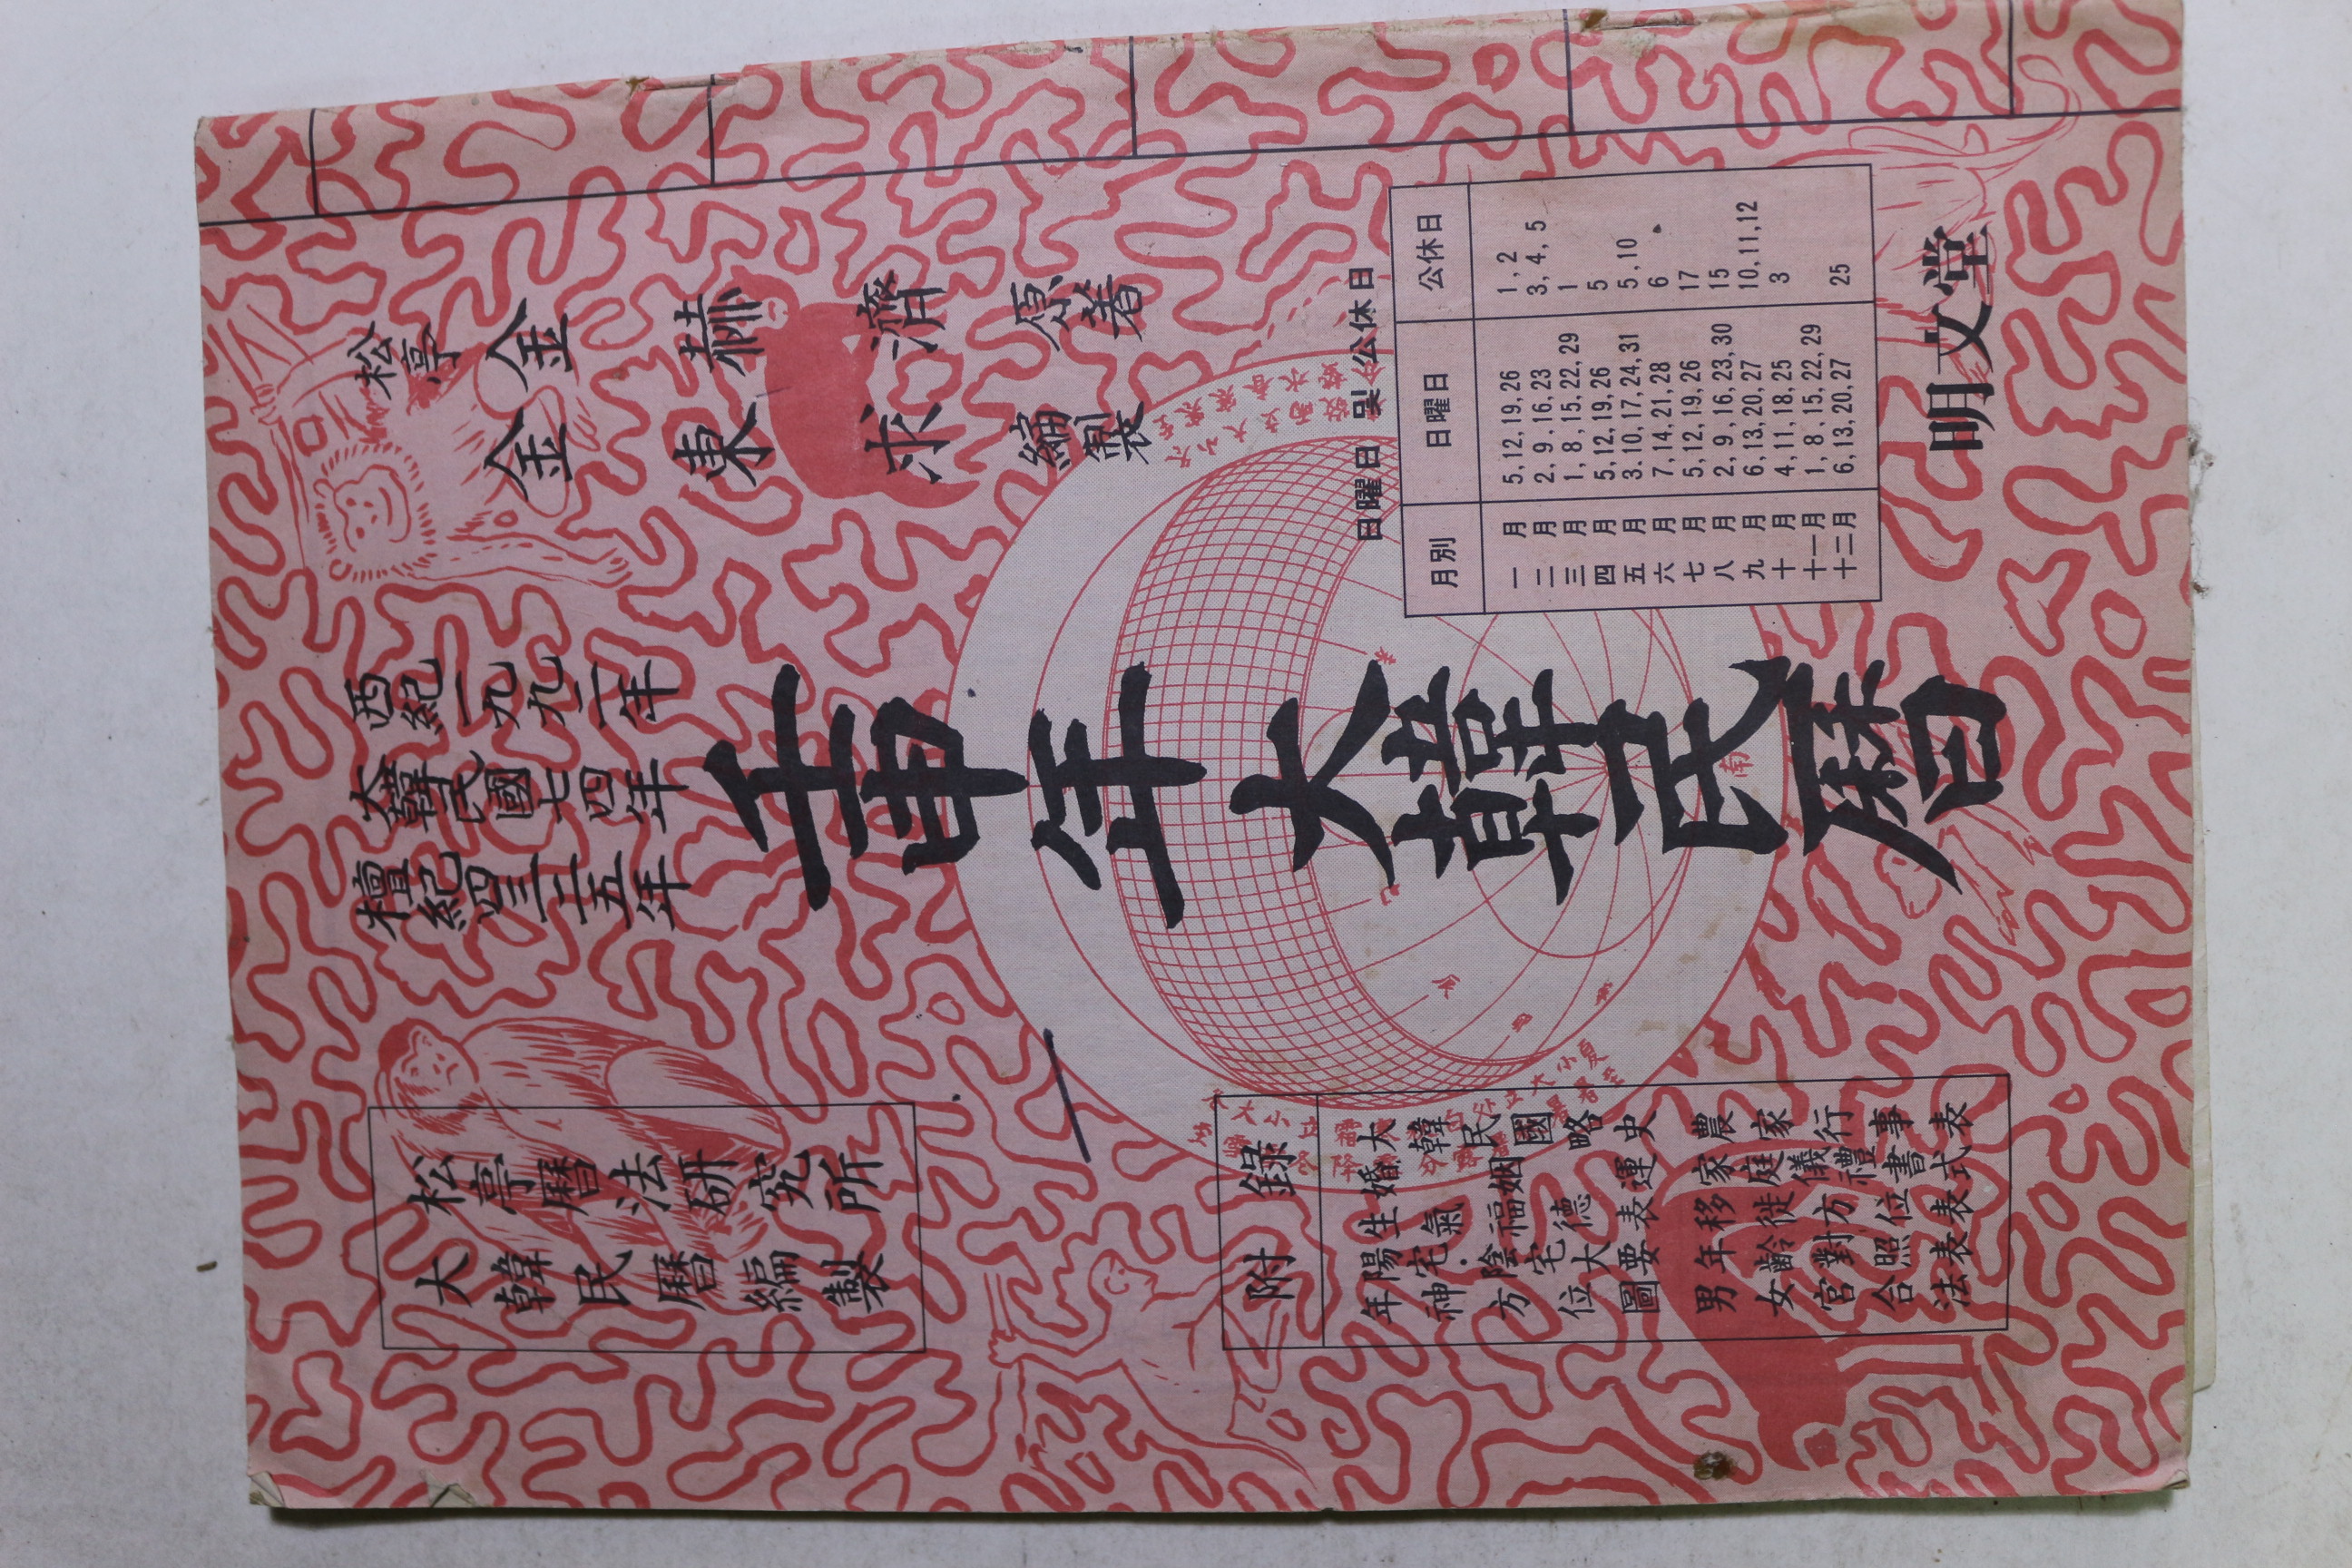 松亭
金赫濟 原著
金東求 編製
西紀一九九二年
大韓民國七四年
檀紀四三二五年
壬申年大韓民曆
松亭曆法研究所
大韓民曆編製
日曜日 및 公休日
月別 日曜日 公休日
一月 5,12,19,26 1,2
二月 2,9,16,23 3,4,5
三月 1,8,15,22,29 1
四月 5,12,19,26 5
五月 3.10,17,24,31 5,10
六月 7,14,21,28 6
七月 5,12,19,26 17
八月 2,9,16,23,30 15
九月 6,13,20,27 10,11,12
十月 4,11,18,25 3
十一月 1,8,15,22,29
十二月 6,13,20,27 25
附錄
大韓民國略史
婚姻運
生氣福德表
陽宅·陰宅大要
年神方位圖
農家行事表
家庭儀禮書式
移徙方位表
年齡對照表
男女宮合法
明文堂